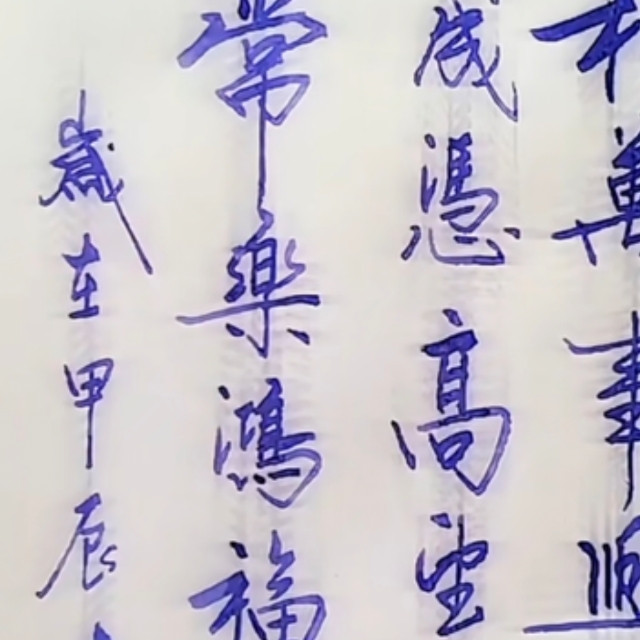 萬事順
成憑高望
常樂鴻福
歲在甲辰